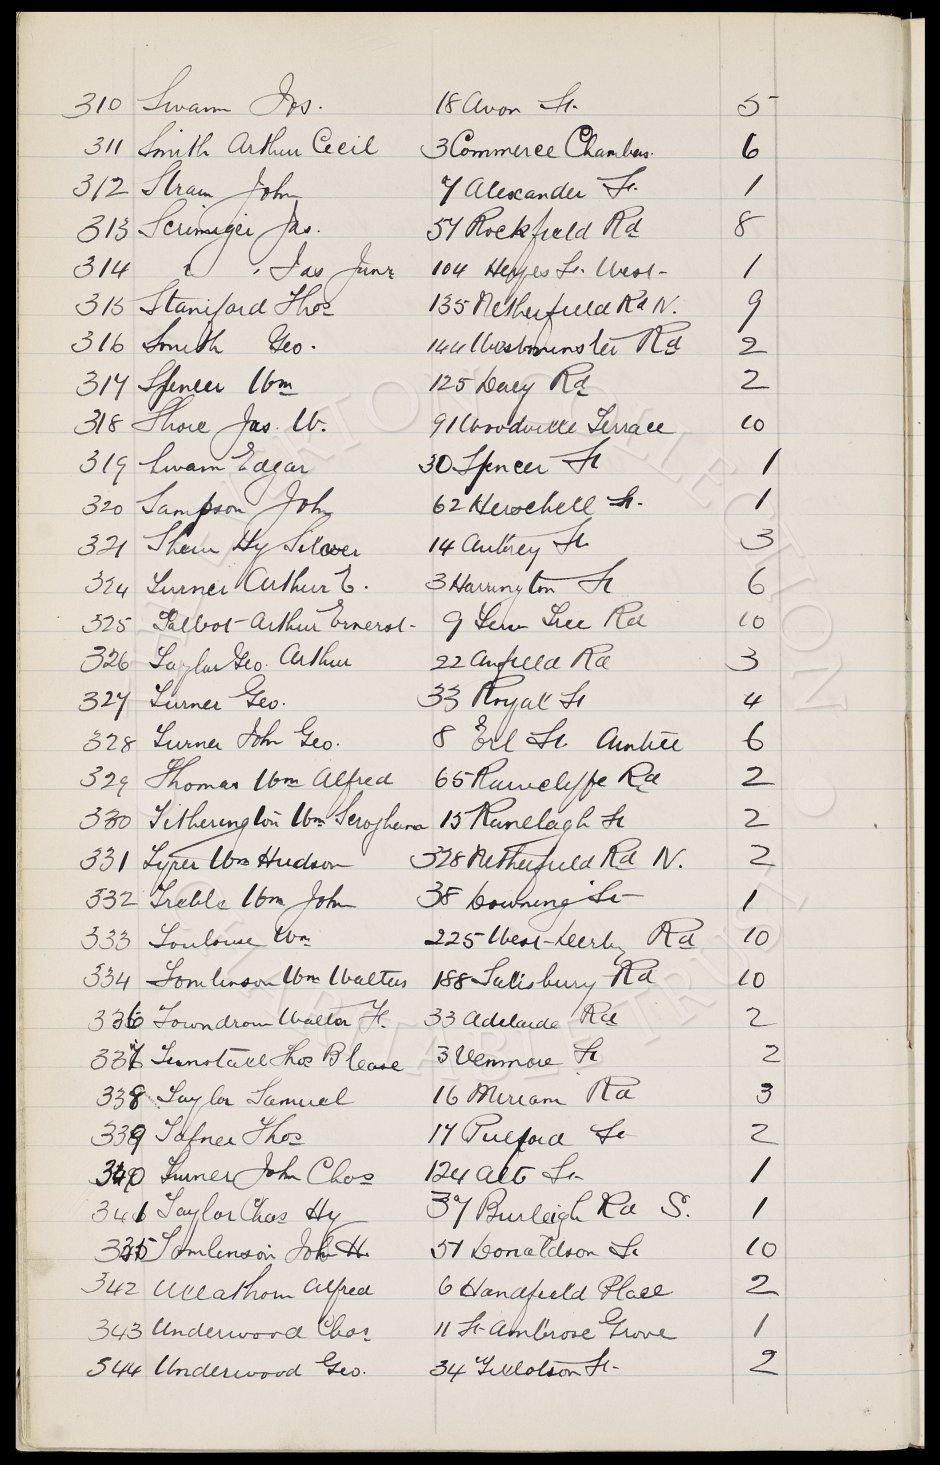 310 Swann Jos. 18 Avon St. 5
311 Smith Arthur Cecil 3 Commerce Chambers. 6
312 Stram John 7 Alexander St. 1
313 Scrimiger Jas. 57 Rockfield Rd 8
314 " " Jas Junr 104 Heyes St. West 1
315 Staniford Thos 135 Netherfield Rd N. 9
316 Smith Geo. 144 Westminster Rd 2
317 Spencer Wm 125 Dacy Rd 2
318 Shore Jas. W. 91 Woodville Terrace 10
319 Swann Edgar 30 Spencer St 1
320 Sampson John 62 Herschell St. 1
321 Hy Silcver 14 Aubrey St 3
324 Turner Arthur E. 3 Harrington St 6
325 Talbot Arthur Ernerst 9 Tree Rd 10
326 Taylor Geo. Arthur 22 Anfield Rd 3
327 Turner Geo. 33 Royal St 4
328 Turner John Geo. 8 Erl St. Aintree 6
329 Thomas Wm Alfred 65 Rawclyffe Rd 2
330 Titherington Wm 15 Ranelagh St 2
331 Tyrer Wm Hudson 328 Netherfield Rd N. 2
332 Treble Wm John 38 Downing St 1
333 Toulouse Wm 225 West Derby Rd 10
334 Tomlinson Wm Walters 188 Salisbury Rd 10
336 Towndrow Walter H. 33 Adelaide Rd 2
337 Thos Blease 3 Venmore St 2
338 Taylor Samuel 16 Miriam Rd 3
339 Tafner Thos 17 Pulford St 2
340 Turner John Chas 124 Alt St. 1
341 Taylor Chas Hy 37 Burleigh Rd S. 1
335 Tomlinson John H. 51 Donaldson St 10
342 Ullathorn Alfred 6 Handfield Place 2
343 Underwood Chas 11 St. Ambrose Grove 1
344 Underwood Geo. 34 Tillotson St 2